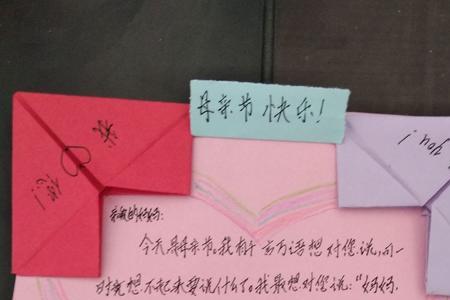 母亲节快乐!
我
您!
you!
亲爱的妈妈:
今天是母亲节,我有千言万语想对您说,可一
时竟想不起来要说什么了。我最想对您说:“妈妈,